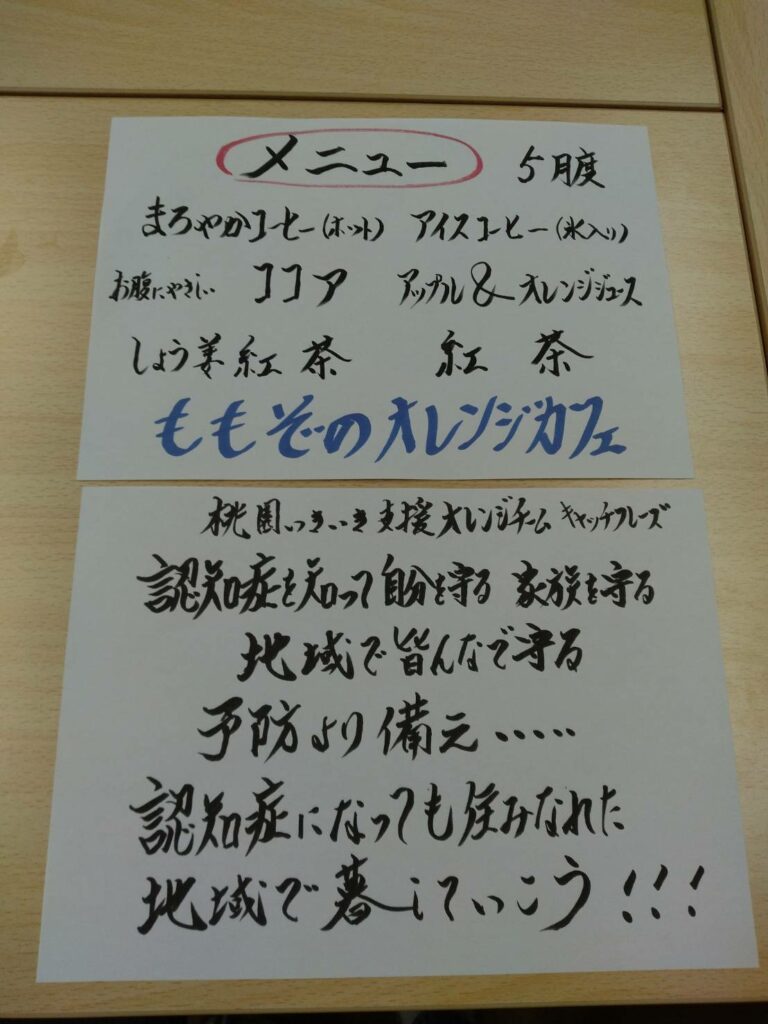 メニュー 5月度
まろやかコーヒー(ホット) アイスコーヒー(氷入り)
お腹にやさしい ココア アップル&オレンジジュース
しょう姜紅茶 紅茶
ももぞのオレンジカフェ
桃園いきいき支援オレンジチーム キャッチフレーズ
認知症を知って自分を守る 家族を守る
地域で皆んなで守る
予防より備え・・・・・
認知症になっても住みなれた
地域で暮していこう!!!